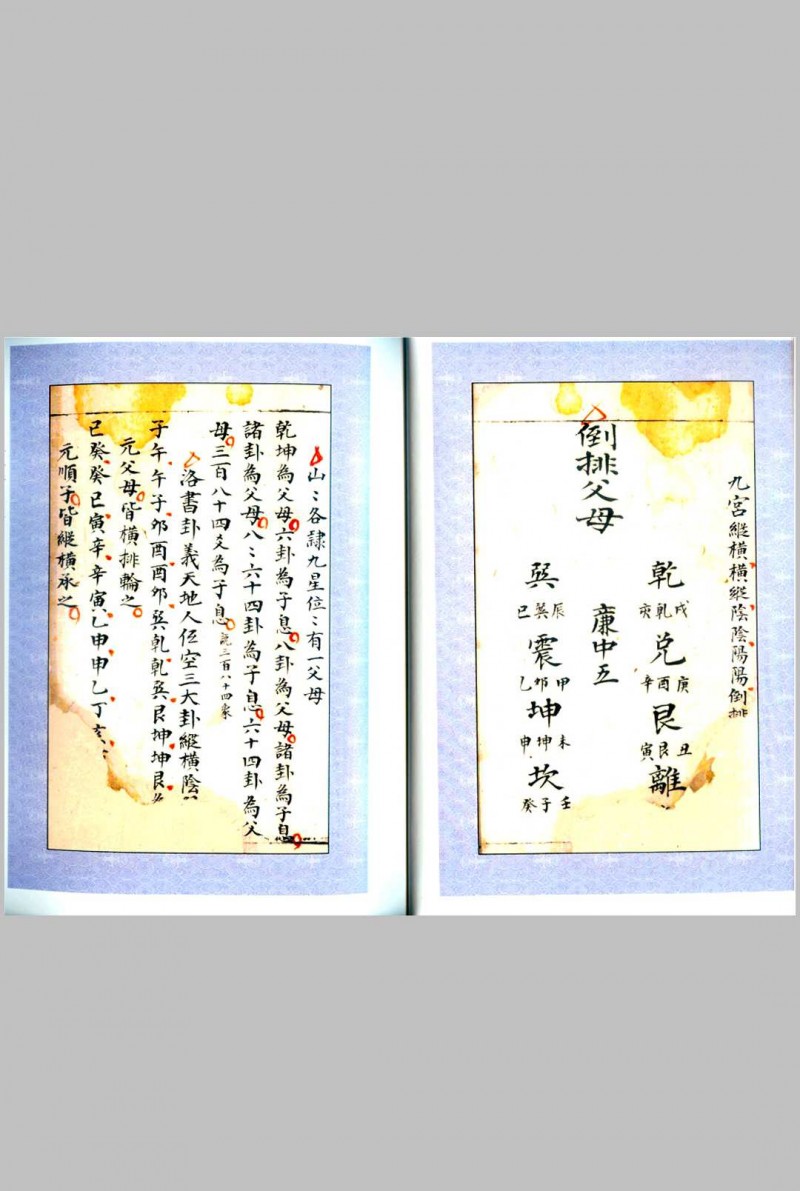 九宮縱橫橫縱陰陰陽陽倒排
乾
戌乾亥
兌
庚酉辛
艮
丑艮寅
離
廉中五
倒排父母
巽
辰巽巳
震
甲卯乙
坤
未坤申
坎
壬子癸
山〻各隸九星位〻有一父母
乾坤為父母六卦為子息八卦為父母諸卦為子息
諸卦為父母八〻六十四卦為子息六十四卦為父
母三百八十四爻為子息三百八十四象
洛書卦義天地人位空三大卦縱橫陰
子午午子卯酉酉卯巽乾乾巽艮坤坤艮為
元父母皆橫排輪之
己癸癸巳寅辛辛寅乙申申乙丁亥
元順子皆縱橫承之